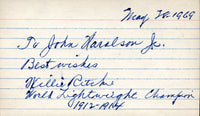 May 20 1969
To John Haralson Jr.
Best wishes
Willie Ritchie
World Lightweight Champion
1912-1914